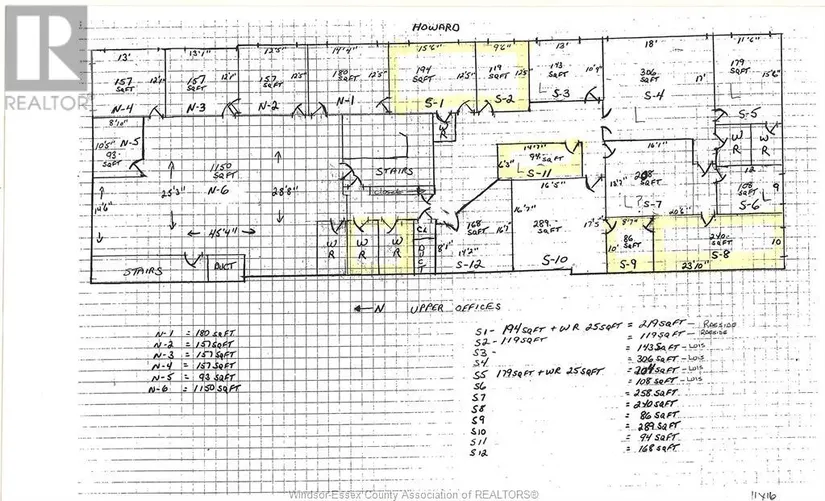 HOWARD
R
REALTOR®
13'
157
SQFT
12'1"
N-4
13'1"
157
SQFT
12'1"
N-3
12'5"
157
SQFT
12'5"
N-2
14'4"
180
SQFT
12'5"
N-1
15'6"
194
SQFT
12'5"
S-1
9'6"
119
SQFT
12'5"
S-2
13'
143
SQFT
10'9"
L
S-3
18'
306
SQFT
17'
L
S-4
11'6"
179
SQFT
15'6"
L
S-5
8'10"
10'5"
N-5
93
SQFT
1150
SQFT
N-6
25'3"
28'8"
14'6"
45'4"
STAIRS
DUCT
STAIRS
CLOSET
WR
WR
WR
WR
CL
DUCT
8'1"
168
SQFT
14'2"
S-12
14'7"
94 SQFT
6'3"
L
S-11
16'5"
16'7"
16'7"
289
SQFT
17'5"
S-10
16'1"
13'7"
SQFT
L?
S-7
WR
WR
12
108
SQFT
L
9
S-6
8'7"
86
SQFT
10'
S-9
20'6"
240
SQFT
10
23'10"
S-8
←N UPPER OFFICES
N-1 = 180 SQFT
N-2 = 157 SQFT
N-3 = 157 SQFT
N-4 = 157 SQFT
N-5 = 93 SQFT
N-6 = 1150 SQFT
S1- 194 SQFT + WR 25 SQFT = 219 SQFT -
S2- 119 SQFT = 119 SQFT -
S3- = 143 SQFT - LOIS
S4 = 306 SQFT - LOIS
S5 179 SQFT + WR 25 SQFT = 204 SQFT - LOIS
S6 = 108 SQFT - LOIS
S7 = 258 SQFT
S8 = 240 SQFT
S9 = 86 SQFT
S10 = 289 SQFT
S11 = 94 SQFT
S12 = 168 SQFT
Windsor-Essex County Association of REALTORS®
11x16